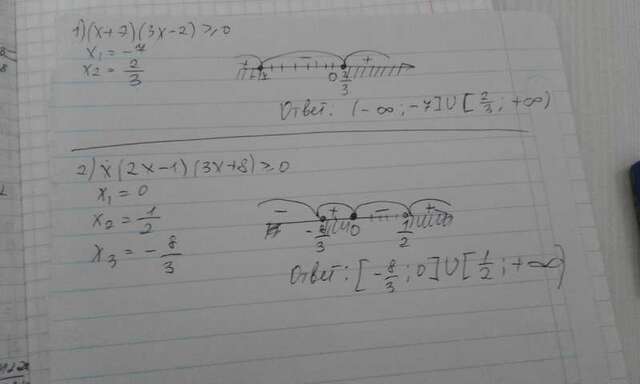 1) (x+7)(3x-2) ≥ 0
x₁ = -7
x₂ = 2/3
+ - +
-7 2/3 0
Ответ: (-∞; -7] ∪ [2/3; +∞)
2) x(2x-1)(3x+8) ≥ 0
x₁ = 0
x₂ = 1/2
x₃ = -8/3
- + - +
-8/3 0 1/2
Ответ: [-8/3; 0] ∪ [1/2; +∞)